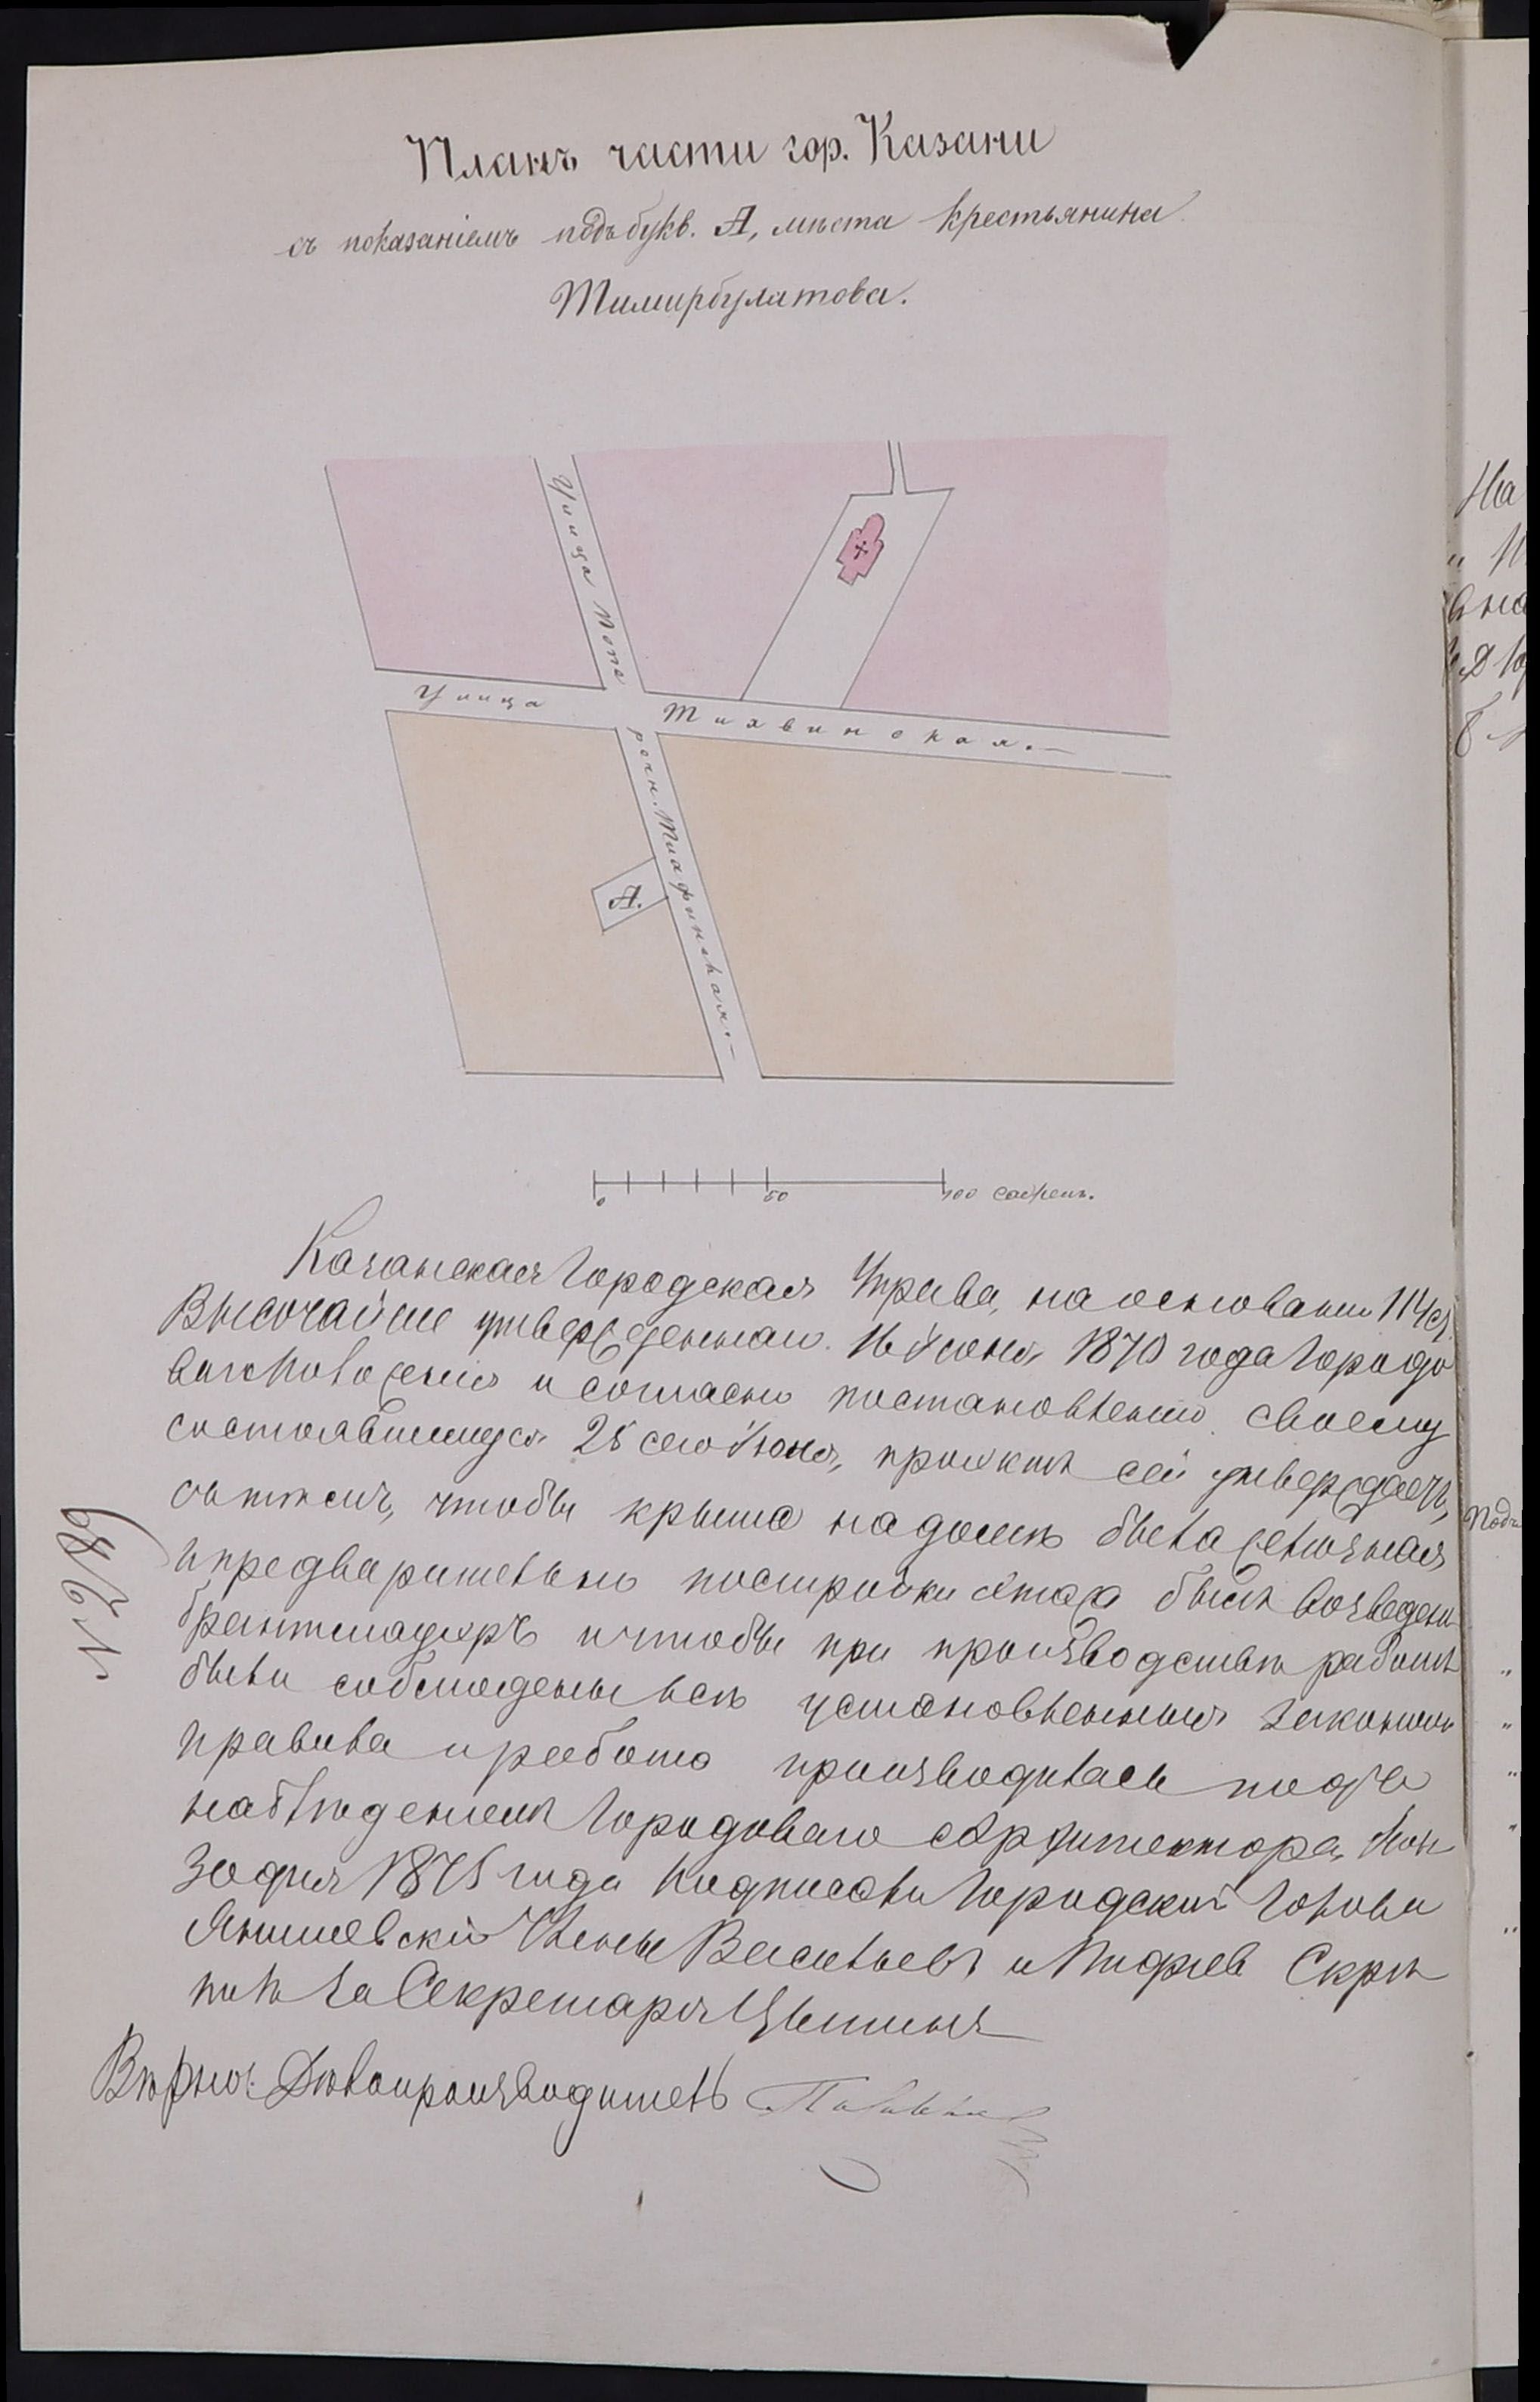 Планъ части гор. Казани
съ показаніемъ подъ букв. А, мѣста крестьянина
Тимирбулатова.
Улица Попе
Улица Тихвинская.
речн. Тиафинская.
А.
0 50 100 Сажень.
Казанская Городская Управа, на основаніи 114 ст.
Высочайше утвержденнаго 16 Іюня 1870 года Городо
ваго Положенія и согласно постановленію своему
состоявшемуся 25 сего Іюня, проэктъ сей утверждаетъ,
съ тѣмъ, чтобы крыша на домѣ была желѣзная
и предварительно постройки этажа былъ возведенъ
брантмауэръ и чтобы при производствѣ работъ
были соблюдены всѣ установленныя закономъ
правила и работа производилась подъ
наблюденіемъ Городоваго Архитектора, Іюня
30 дня 1875 года Подписали Городской Голова
Янишевскій Члены Васильевъ и Скрѣ
пилъ За Секретаря
Вѣрно: Дѣлопроизводитель
№ 2189
На
Подъ